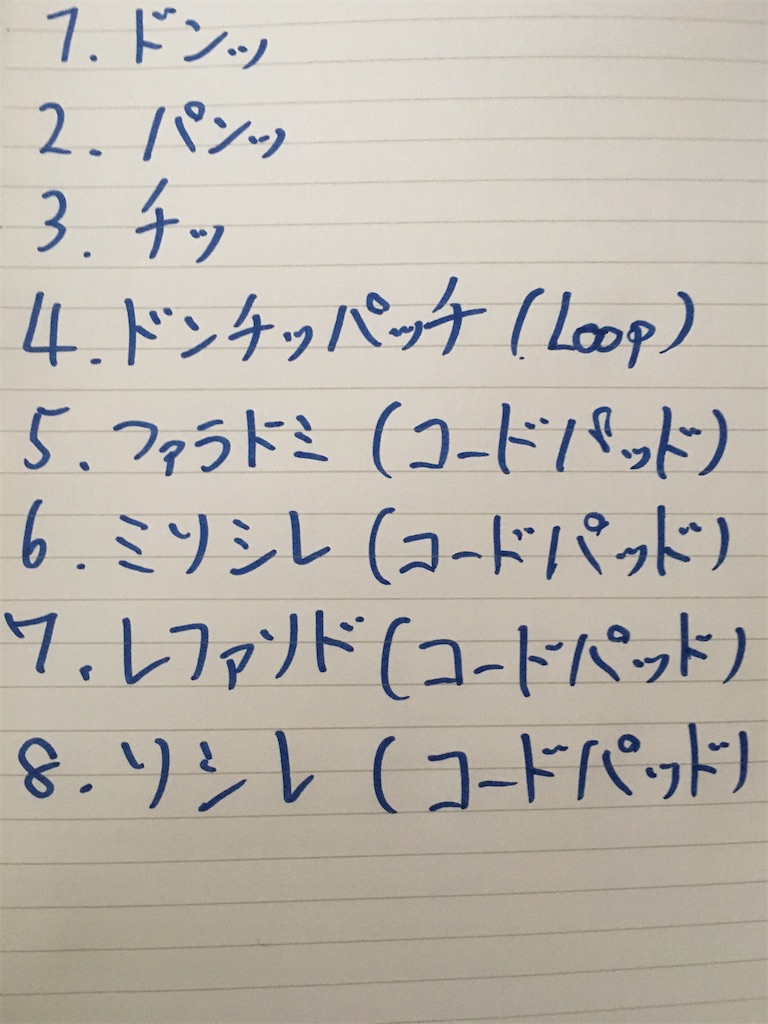 1. ドンッ
2. パンッ
3. チッ
4. ドンチッパッチ (Loop)
5. ファラドミ (コードパッド)
6. ミソシレ (コードパッド)
7. レファソド (コードパッド)
8. ソシレ (コードパッド)